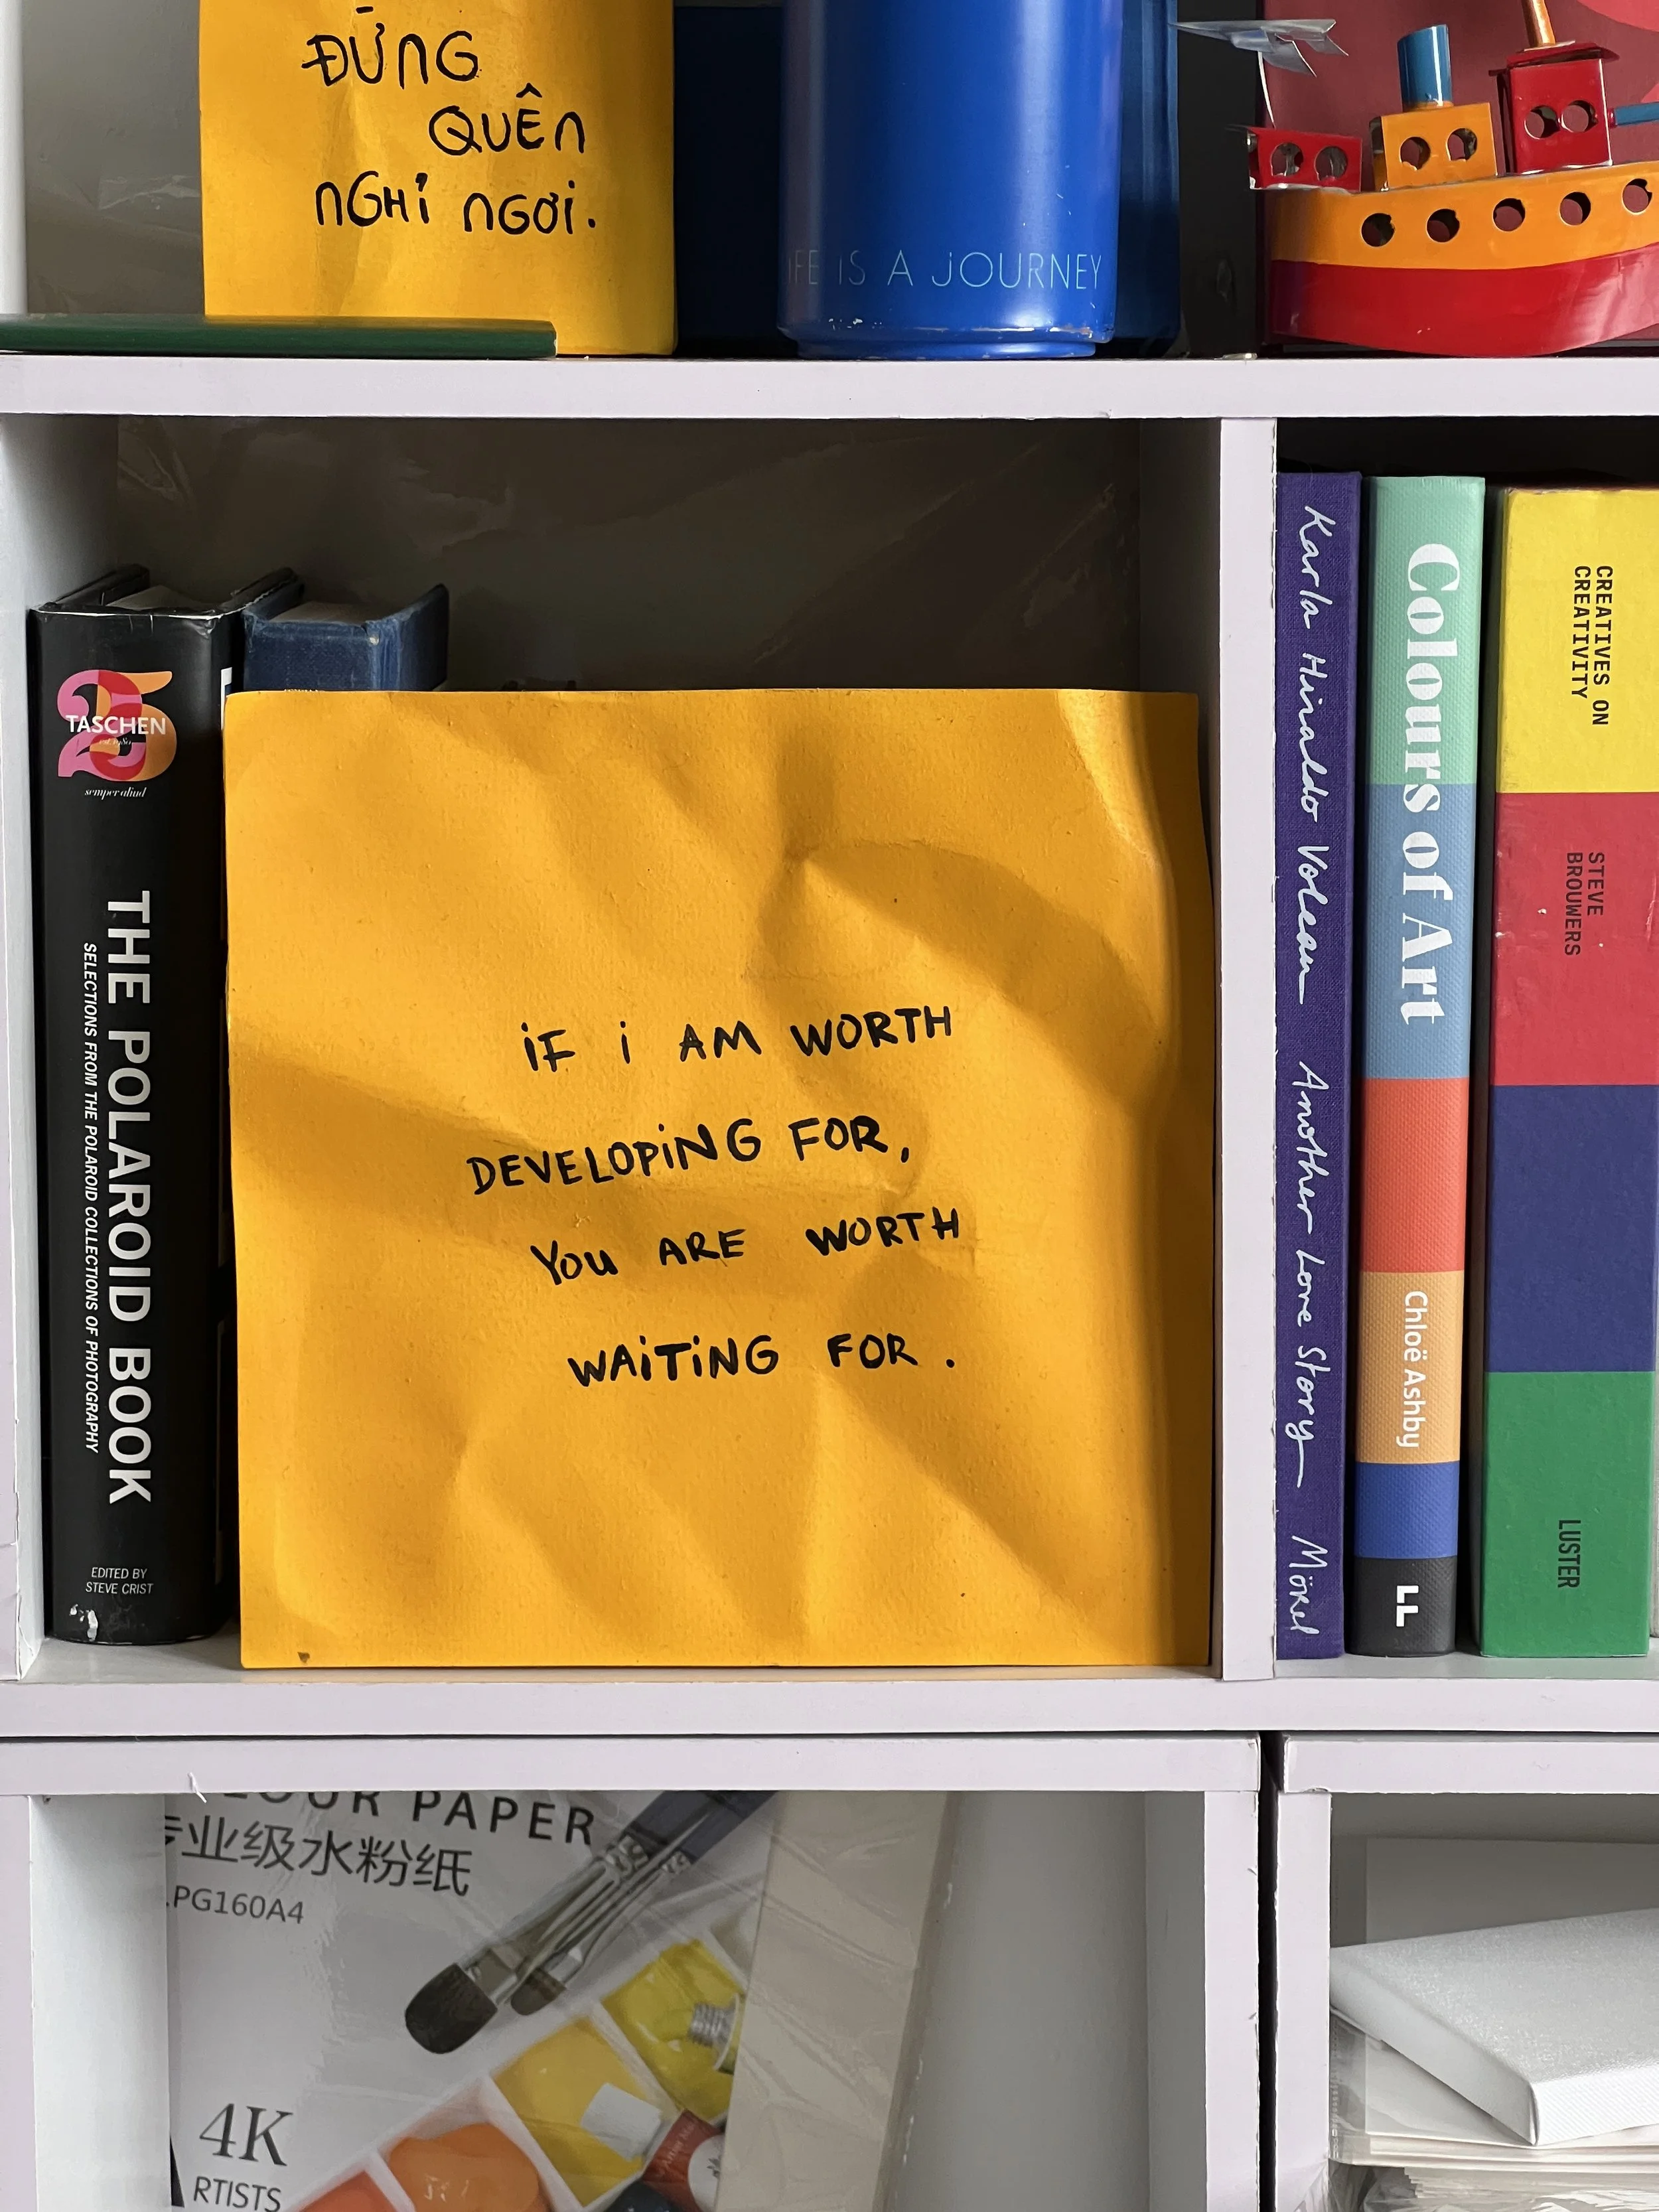 ĐỪNG
QUÊN
NGHỈ NGƠI.
IFE IS A JOURNEY
25
TASCHEN
semper aliud
THE POLAROID BOOK
SELECTIONS FROM THE POLAROID COLLECTIONS OF PHOTOGRAPHY
EDITED BY
STEVE CRIST
iF i AM WORTH
DEVELOPiNG FOR,
YOU ARE WORTH
WAiTiNG FOR.
Karla Hiraldo Voleau Another Love Story Mörel
Colours of Art
Chloë Ashby
LL
CREATIVES ON
CREATIVITY
STEVE
BROUWERS
LUSTER
OUR PAPER
业级水粉纸
PG160A4
4K
RTISTS